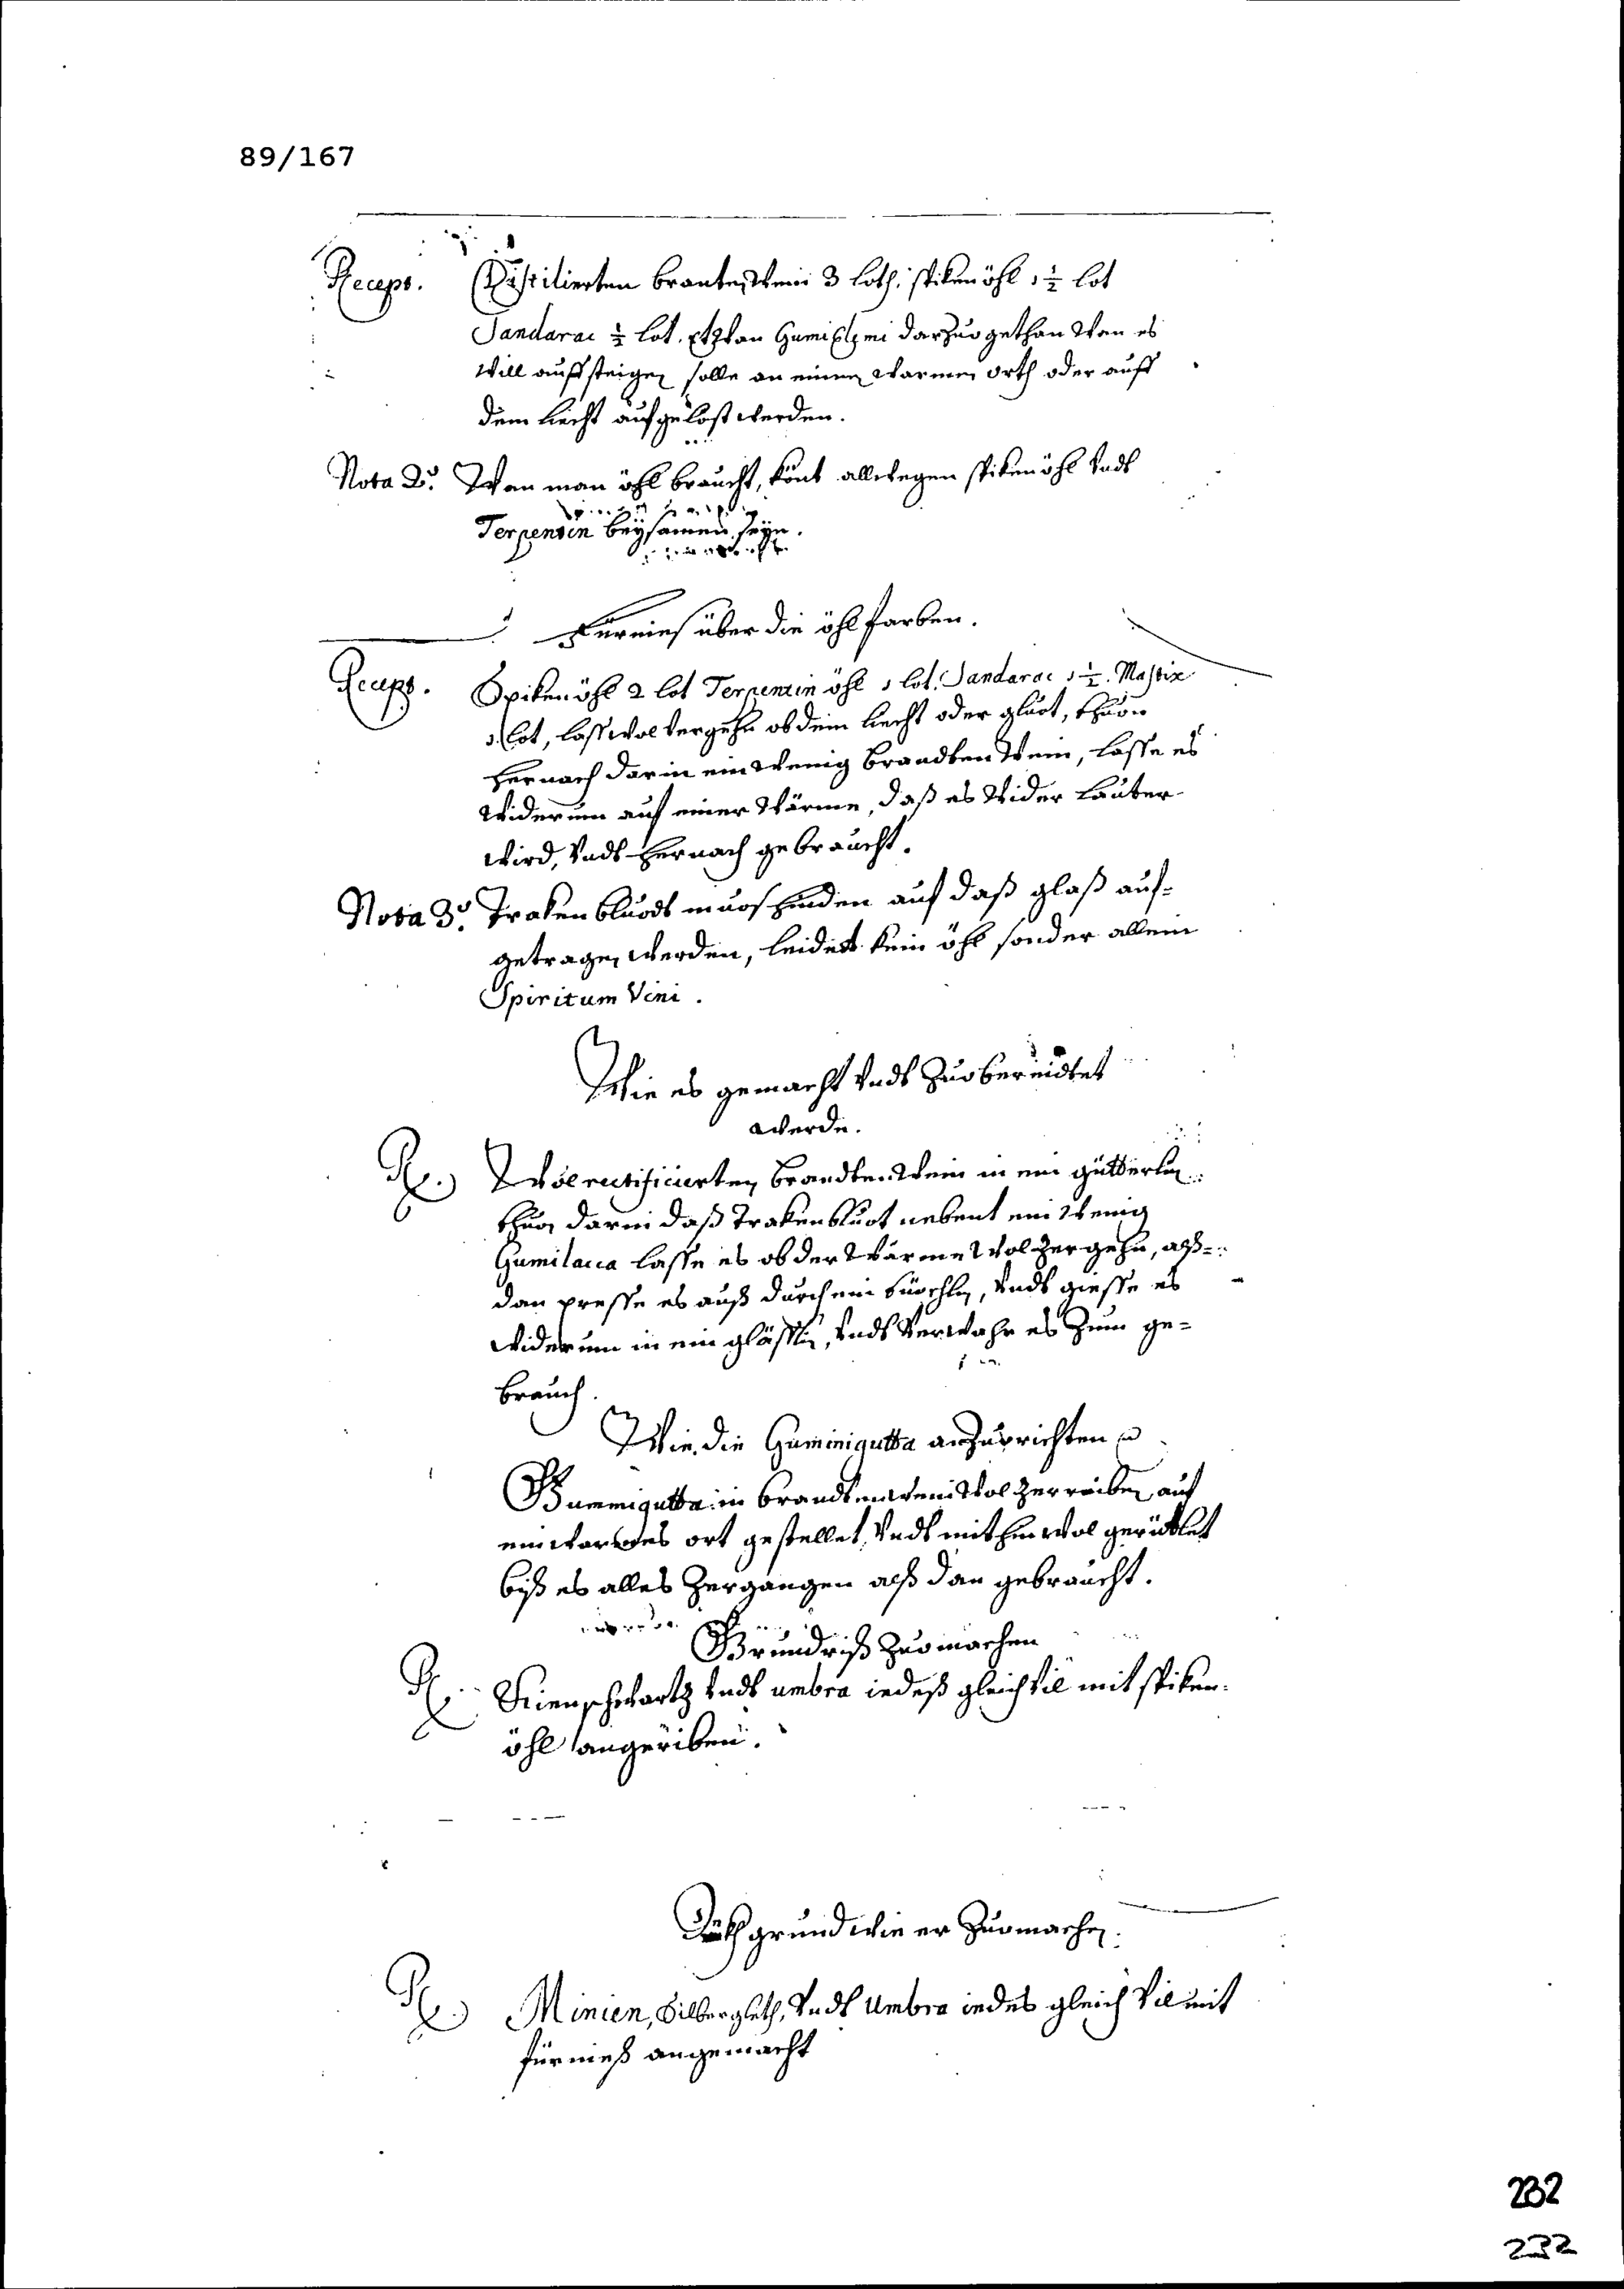 89/167
Recept. Distilierten brantenwein 3 loth, spikenöhl 1 ½ lot
Sandarac ½ lot. Etwan Gumi Elemi darzuo gethan wan es
will auffsteigen solle an einem warmen orth oder auff
dem liecht aufgelöst werden.
Nota 2º. Wan man öhl braucht, könt allwegen spikenöhl vndt
Terpentin beysamen seyn.
Fürnies über die öhlfarben.
Recept. Spikenöhl 2 lot Terpentin öhl 1 lot. Sandarac 1 ½. Mastix
1 lot, lass wol vergehn ob dem liecht oder gluot, thuon
hernach darin ein wenig brandten wein, lasse es
widerum auf einer wärme, daß es wider lauter
wird, vndt hernach gebraucht.
Nota 3º. Traken bluodt muos hinden auf daß glaß auf-
getragen werden, leidet kein öhl sonder allein
Spiritum Vini.
Wie es gemacht vndt zuobereidtet
werde.
Rx. Wol rectificierten brandten wein in ein gütterlin
thuon darin daß Trakenbluot nebent ein wenig
Gumilacca lasse es ob der wärme wol zergehn, alß-
dan presse es auß durch ein tüechlin, vndt giesse es
widerum in ein gläßlin, vndt verwahr es zum ge-
brauch.
Wie die Gummigutta anzuorichten
Gummigutta in brandtenwein wol zerreiben auf
ein warmes ort gestellet, vndt mithin wol gerüttlet
biß es alles zergangen alß dan gebraucht.
Grundriß zuomachen
Rx. Kienschwartz vndt umbra iedeß gleich vil mit spiken-
öhl angeriben.
grund wie er zuomachen
Rx. Minien, Silbergleth, vndt Umbra iedes gleich vil mit
fürnieß angemacht
232
232